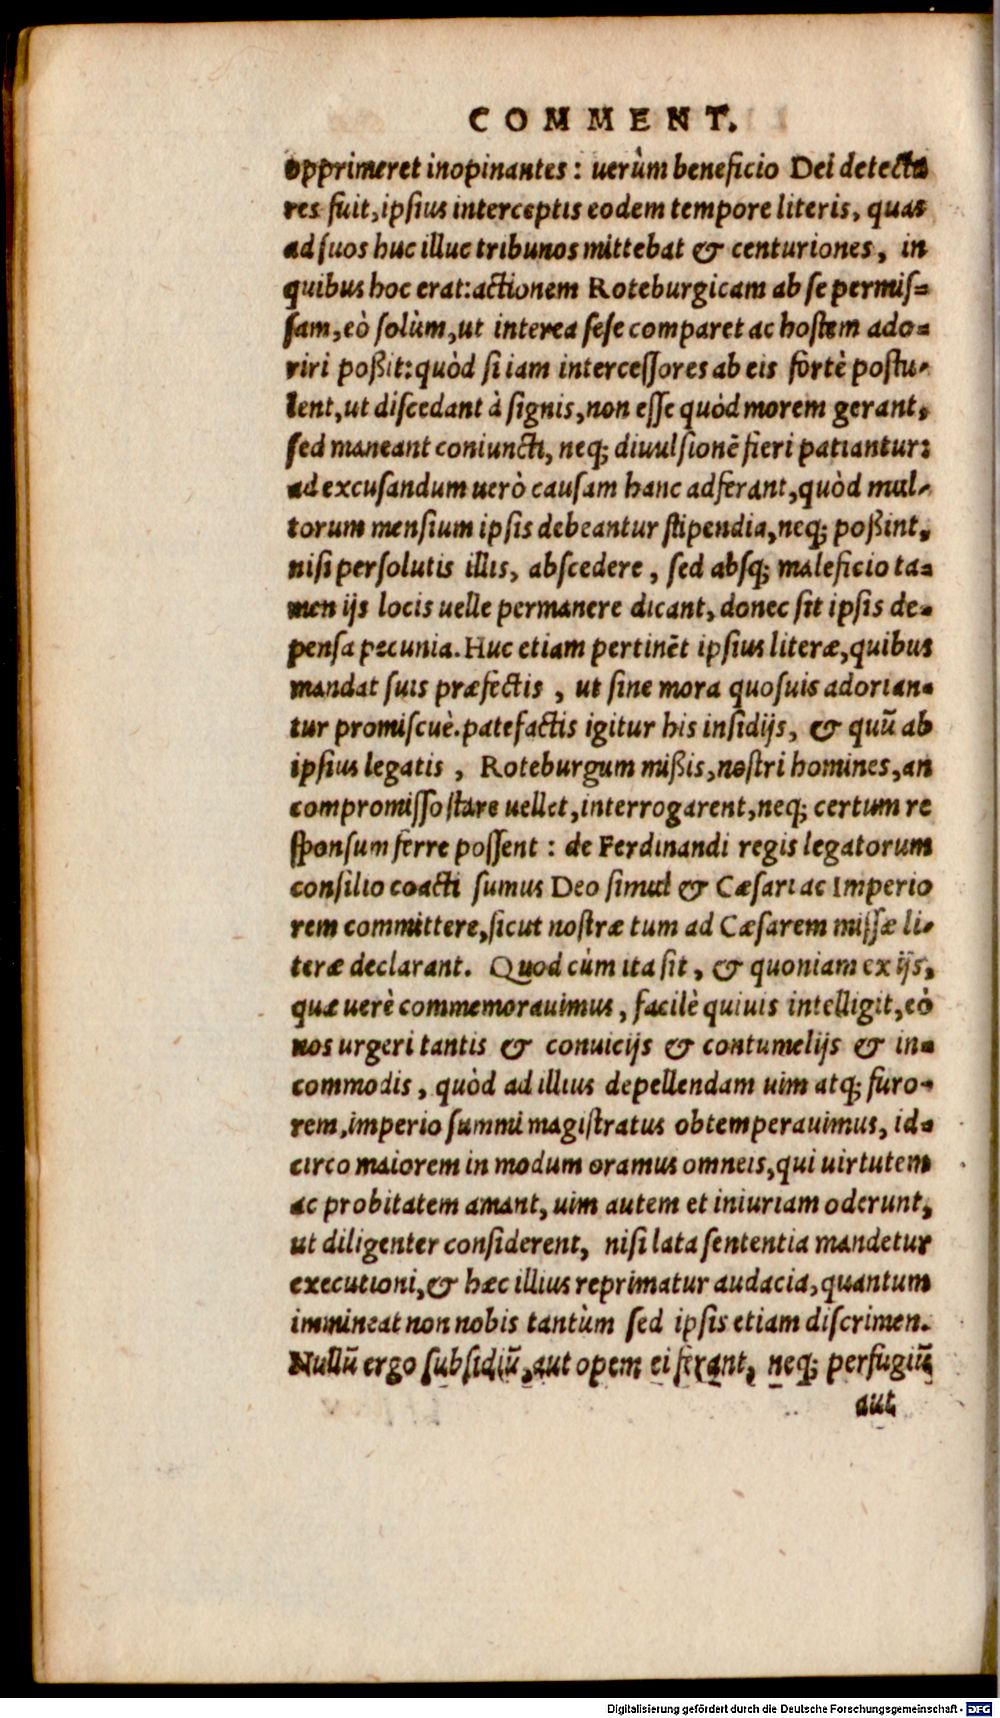 COMMENT.
opprimeret inopinantes: uerùm beneficio Dei detecta
res fuit, ipsius interceptis eodem tempore literis, quas
ad suos huc illuc tribunos mittebat & centuriones, in
quibus hoc erat: actionem Roteburgicam ab se permis-
sam, eò solùm, ut interea sese comparet ac hostem ado-
riri poßit: quòd si iam intercessores ab eis fortè postu-
lent, ut discedant à signis, non esse quòd morem gerant,
sed maneant coniuncti, neq; diuulsionē fieri patiantur:
ad excusandum uerò causam hanc adferant, quòd mul-
torum mensium ipsis debeantur stipendia, neq; poßint,
nisi persolutis illis, abscedere, sed absq; maleficio ta-
men ijs locis uelle permanere dicant, donec sit ipsis de-
pensa pecunia. Huc etiam pertinēt ipsius literæ, quibus
mandat suis præfectis, ut sine mora quosuis adorian-
tur promiscuè. patefactis igitur his insidijs, & quū ab
ipsius legatis, Roteburgum mißis, nostri homines, an
compromisso stare uellet, interrogarent, neq; certum re
sponsum ferre possent: de Ferdinandi regis legatorum
consilio coacti sumus Deo simul & Cæsari ac Imperio
rem committere, sicut nostræ tum ad Cæsarem missæ li-
teræ declarant. Quod cùm ita sit, & quoniam ex ijs,
quæ uerè commemorauimus, facilè quiuis intelligit, eò
nos urgeri tantis & conuicijs & contumelijs & in-
commodis, quòd ad illius depellendam uim atq; furo-
rem, imperio summi magistratus obtemperauimus, id-
circo maiorem in modum oramus omneis, qui uirtutem
ac probitatem amant, uim autem et iniuriam oderunt,
ut diligenter considerent, nisi lata sententia mandetur
executioni, & hæc illius reprimatur audacia, quantum
immineat non nobis tantùm sed ipsis etiam discrimen.
Nullū ergo subsidiū, aut opem ei ferant, neq; perfugiū
aut
Digitalisierung gefördert durch die Deutsche Forschungsgemeinschaft - DFG